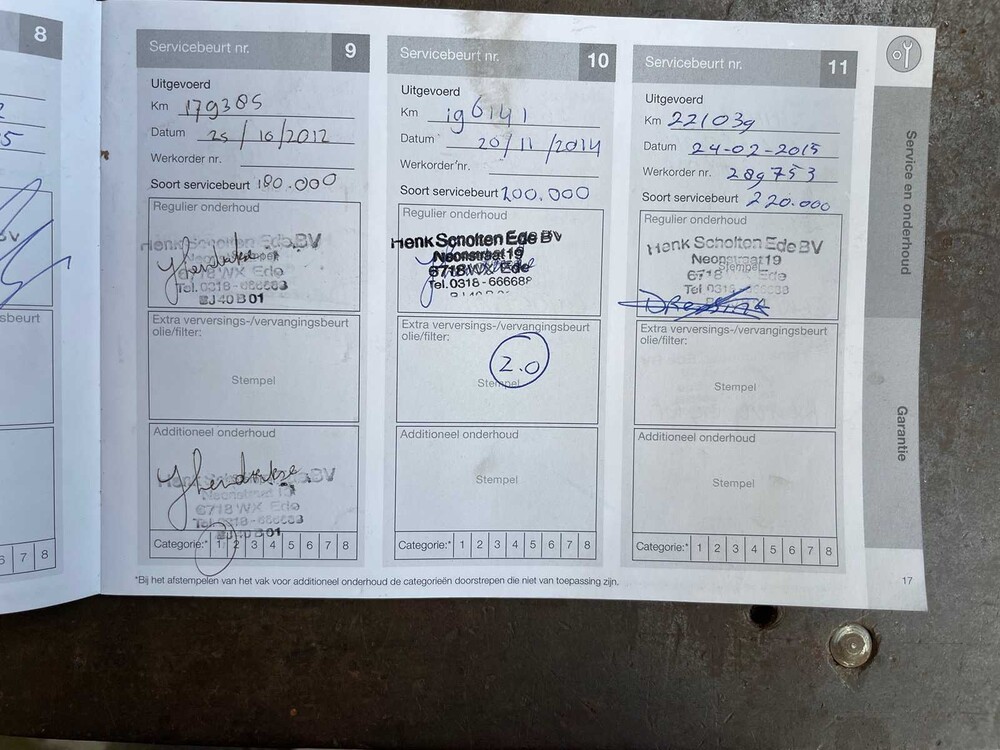 8
Servicebeurt nr. 9
Uitgevoerd
Km 179385
Datum 25/10/2012
Werkorder nr.
Soort servicebeurt 180.000
Regulier onderhoud
Henk Scholten Ede BV
6718 WX Ede
Tel. 0318-666688
BJ40B01
Extra verversings-/vervangingsbeurt
olie/filter:
Stempel
Additioneel onderhoud
BV
Neonstraat 19
6718 WX Ede
Tel. 0318-666688
BJ40B01
Categorie:* 1 2 3 4 5 6 7 8
Servicebeurt nr. 10
Uitgevoerd
Km 196141
Datum 20/11/2014
Werkorder nr.
Soort servicebeurt 200.000
Regulier onderhoud
Henk Scholten Ede BV
Neonstraat 19
6718 WX Ede
Tel. 0318-666688
Extra verversings-/vervangingsbeurt
olie/filter:
2.0
Stempel
Additioneel onderhoud
Stempel
Categorie:* 1 2 3 4 5 6 7 8
Servicebeurt nr. 11
Uitgevoerd
Km 221039
Datum 24-02-2015
Werkorder nr. 289753
Soort servicebeurt 220.000
Regulier onderhoud
Henk Scholten Ede BV
Neonstraat 19
Stempel
6718 Ede
Tel 0318-666688
Extra verversings-/vervangingsbeurt
olie/filter:
Stempel
Additioneel onderhoud
Stempel
Categorie:* 1 2 3 4 5 6 7 8
*Bij het afstempelen van het vak voor additioneel onderhoud de categorieën doorstrepen die niet van toepassing zijn.
17
Service en onderhoud
Garantie
sbeurt
6 7 8